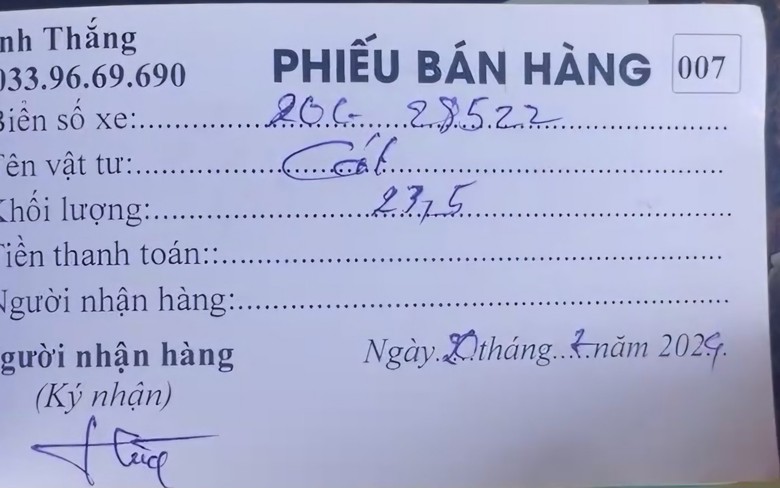 nh Thắng
033.96.69.690
PHIẾU BÁN HÀNG 007
Biển số xe: 20C 28522
Tên vật tư: Cát
Khối lượng: 23,5
Tiền thanh toán::
Người nhận hàng:
gười nhận hàng
Ngày 20 tháng 7 năm 2024.
(Ký nhận)